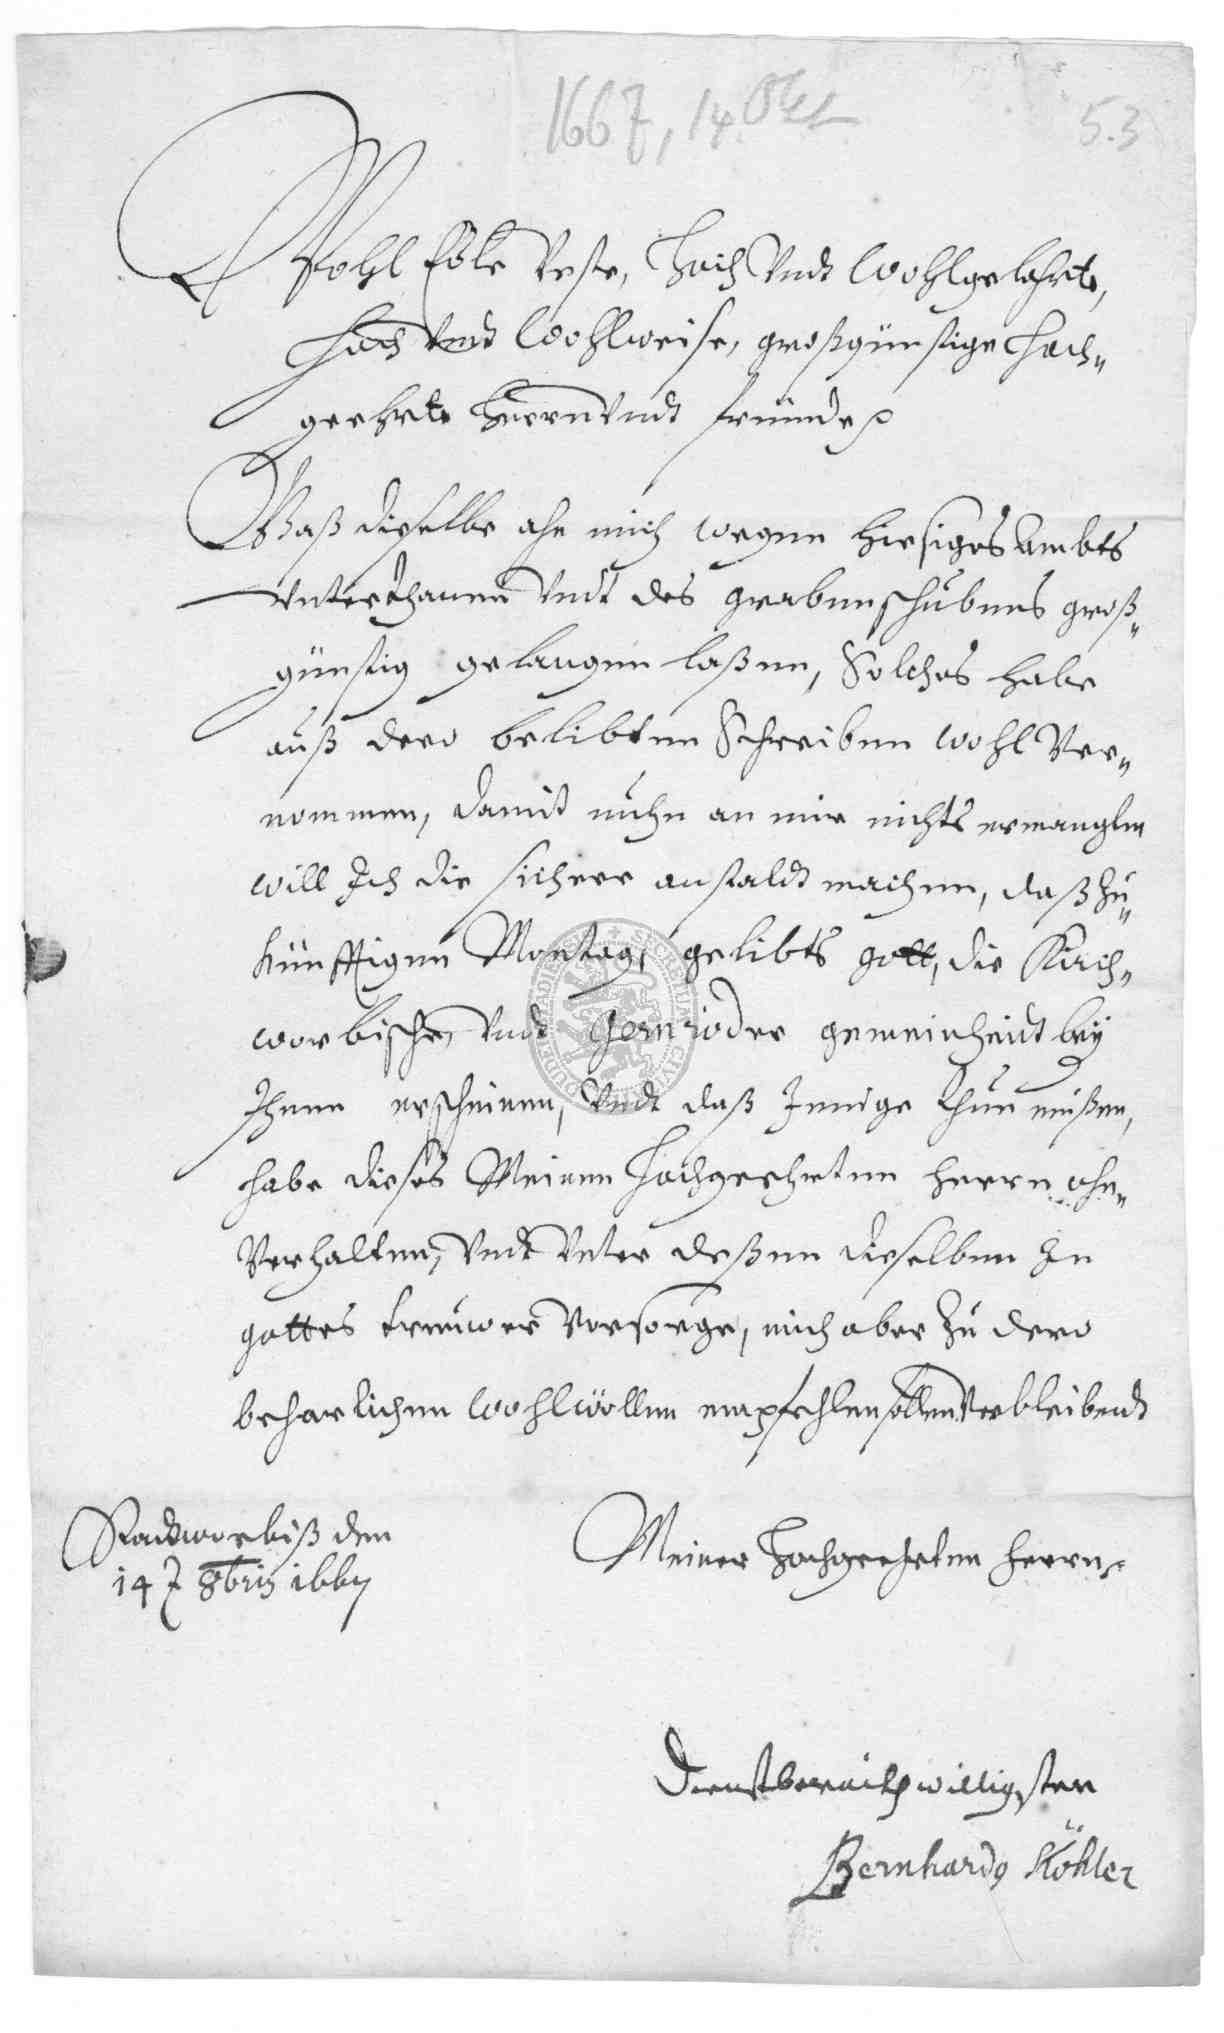 1667, 14. Okt
5.3
Wohl Edle Veste, Hoch Vndt Wohlgelahrte,
Hoch Vndt Wohlweise, großgünstige Hoch„
geehrte Herrn Vndt freünde
Waß dieselbe ahn mich wegen hiesiges Ambts
Vnterthanen Vndt des grabenschübens groß„
günstig gelangen laßen, Solches habe
auß dero belibten Schreiben wohl Ver„
nommen, damit nuhn an mir nichts ermanglen
will Ich die sichere anstaldt machen, daß zu„
künfftigen Montag, gelibts gott, die Kirch„
worbische Vndt Gernröder gemeinheidt bey
Ihnen erscheinen, Vndt daß Jenige thun müßen,
habe dieses Meinen Hochgeehrten herrn ohn„
Verhalten, Vndt Vnter deßen dieselben In
gottes treuwer Vorsorge, mich aber zu dero
beharlichen Wohlwöllen empfehlen sollen Verbleibendt
Stadtworbiß den
14 8bris 1667
Meiner Hochgeehrten herrn
Dienstbereithwilligster
Bernhardg Köhler